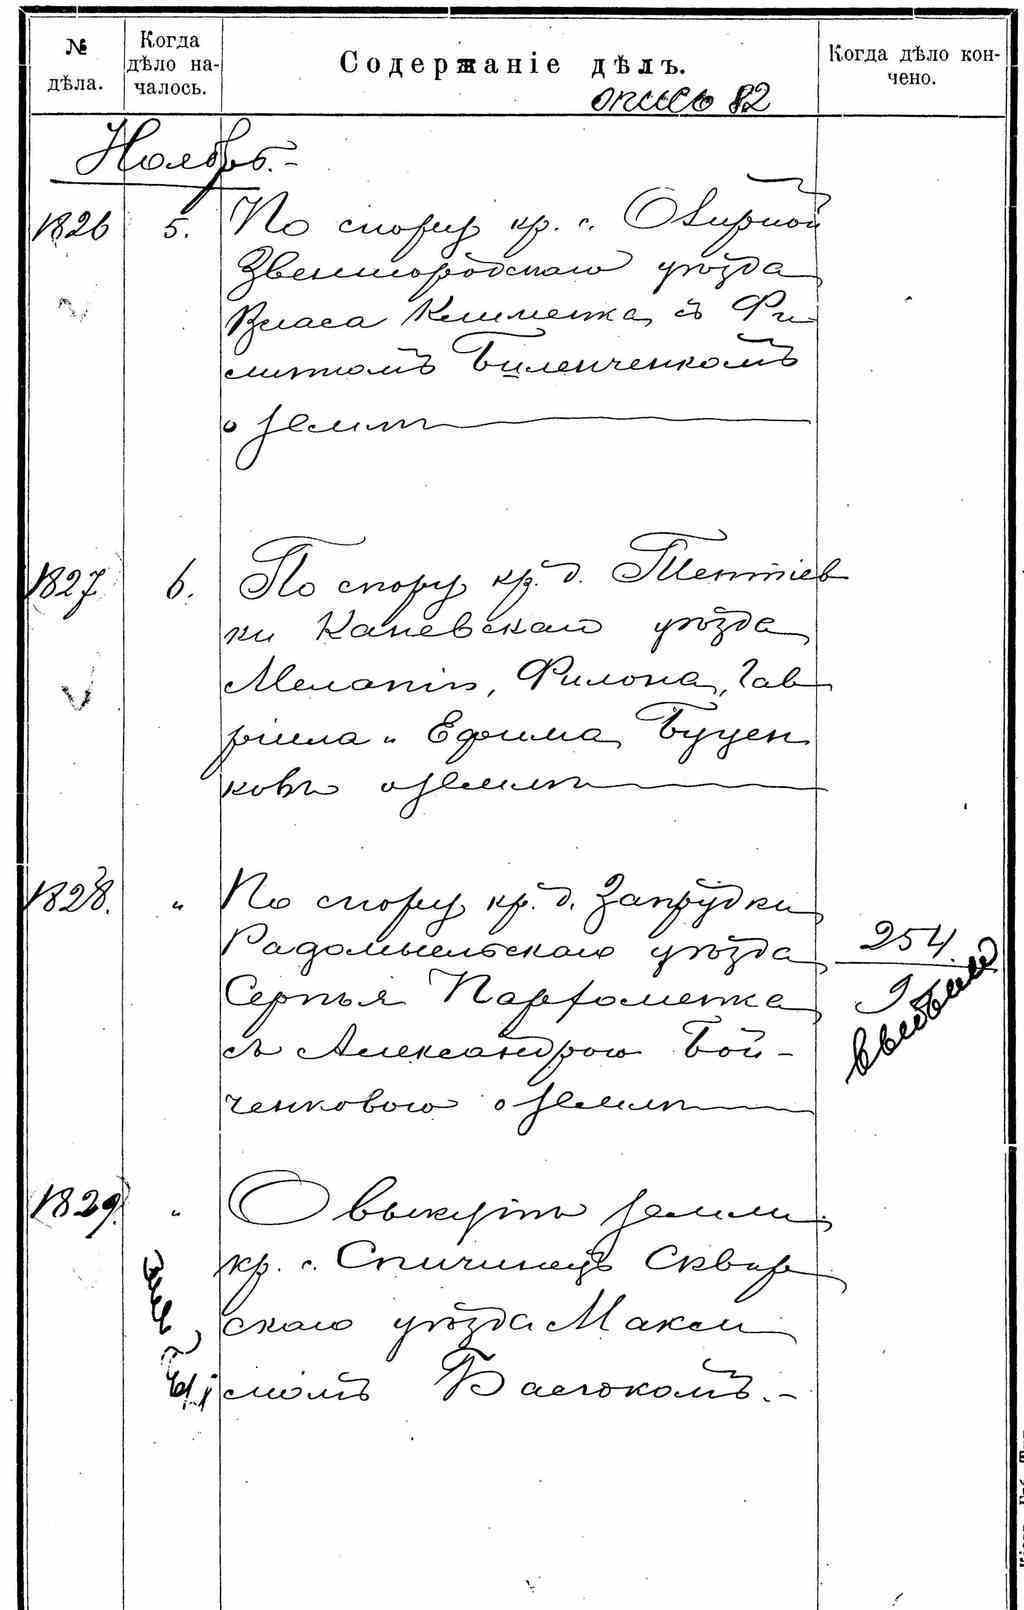 № дѣла.
Когда дѣло на-
чалось.
Содержаніе дѣлъ.
Когда дѣло кон-
чено.
опись 82
Ноябрь.-
1826 5. По спору кр. с. Озирной
Звенигородскаго уѣзда
Власа Клименка съ Фи-
липпомъ Биленченкомъ
о землѣ
1827 6. По спору кр. д. Тептіев
ки Каневскаго уѣзда
Меланіи, Филона, Гав
ріила и Ефима Буцен
ковъ о землѣ
1828. " По спору кр. д. Запрудки
Радомысльскаго уѣзда
Сергѣя Парфоменка
съ Александрою Бой-
ченковою о землѣ
254
9
1829. " О выкупѣ земли
кр. с. Спичинецъ Сквир
скаго уѣзда Макси
момъ